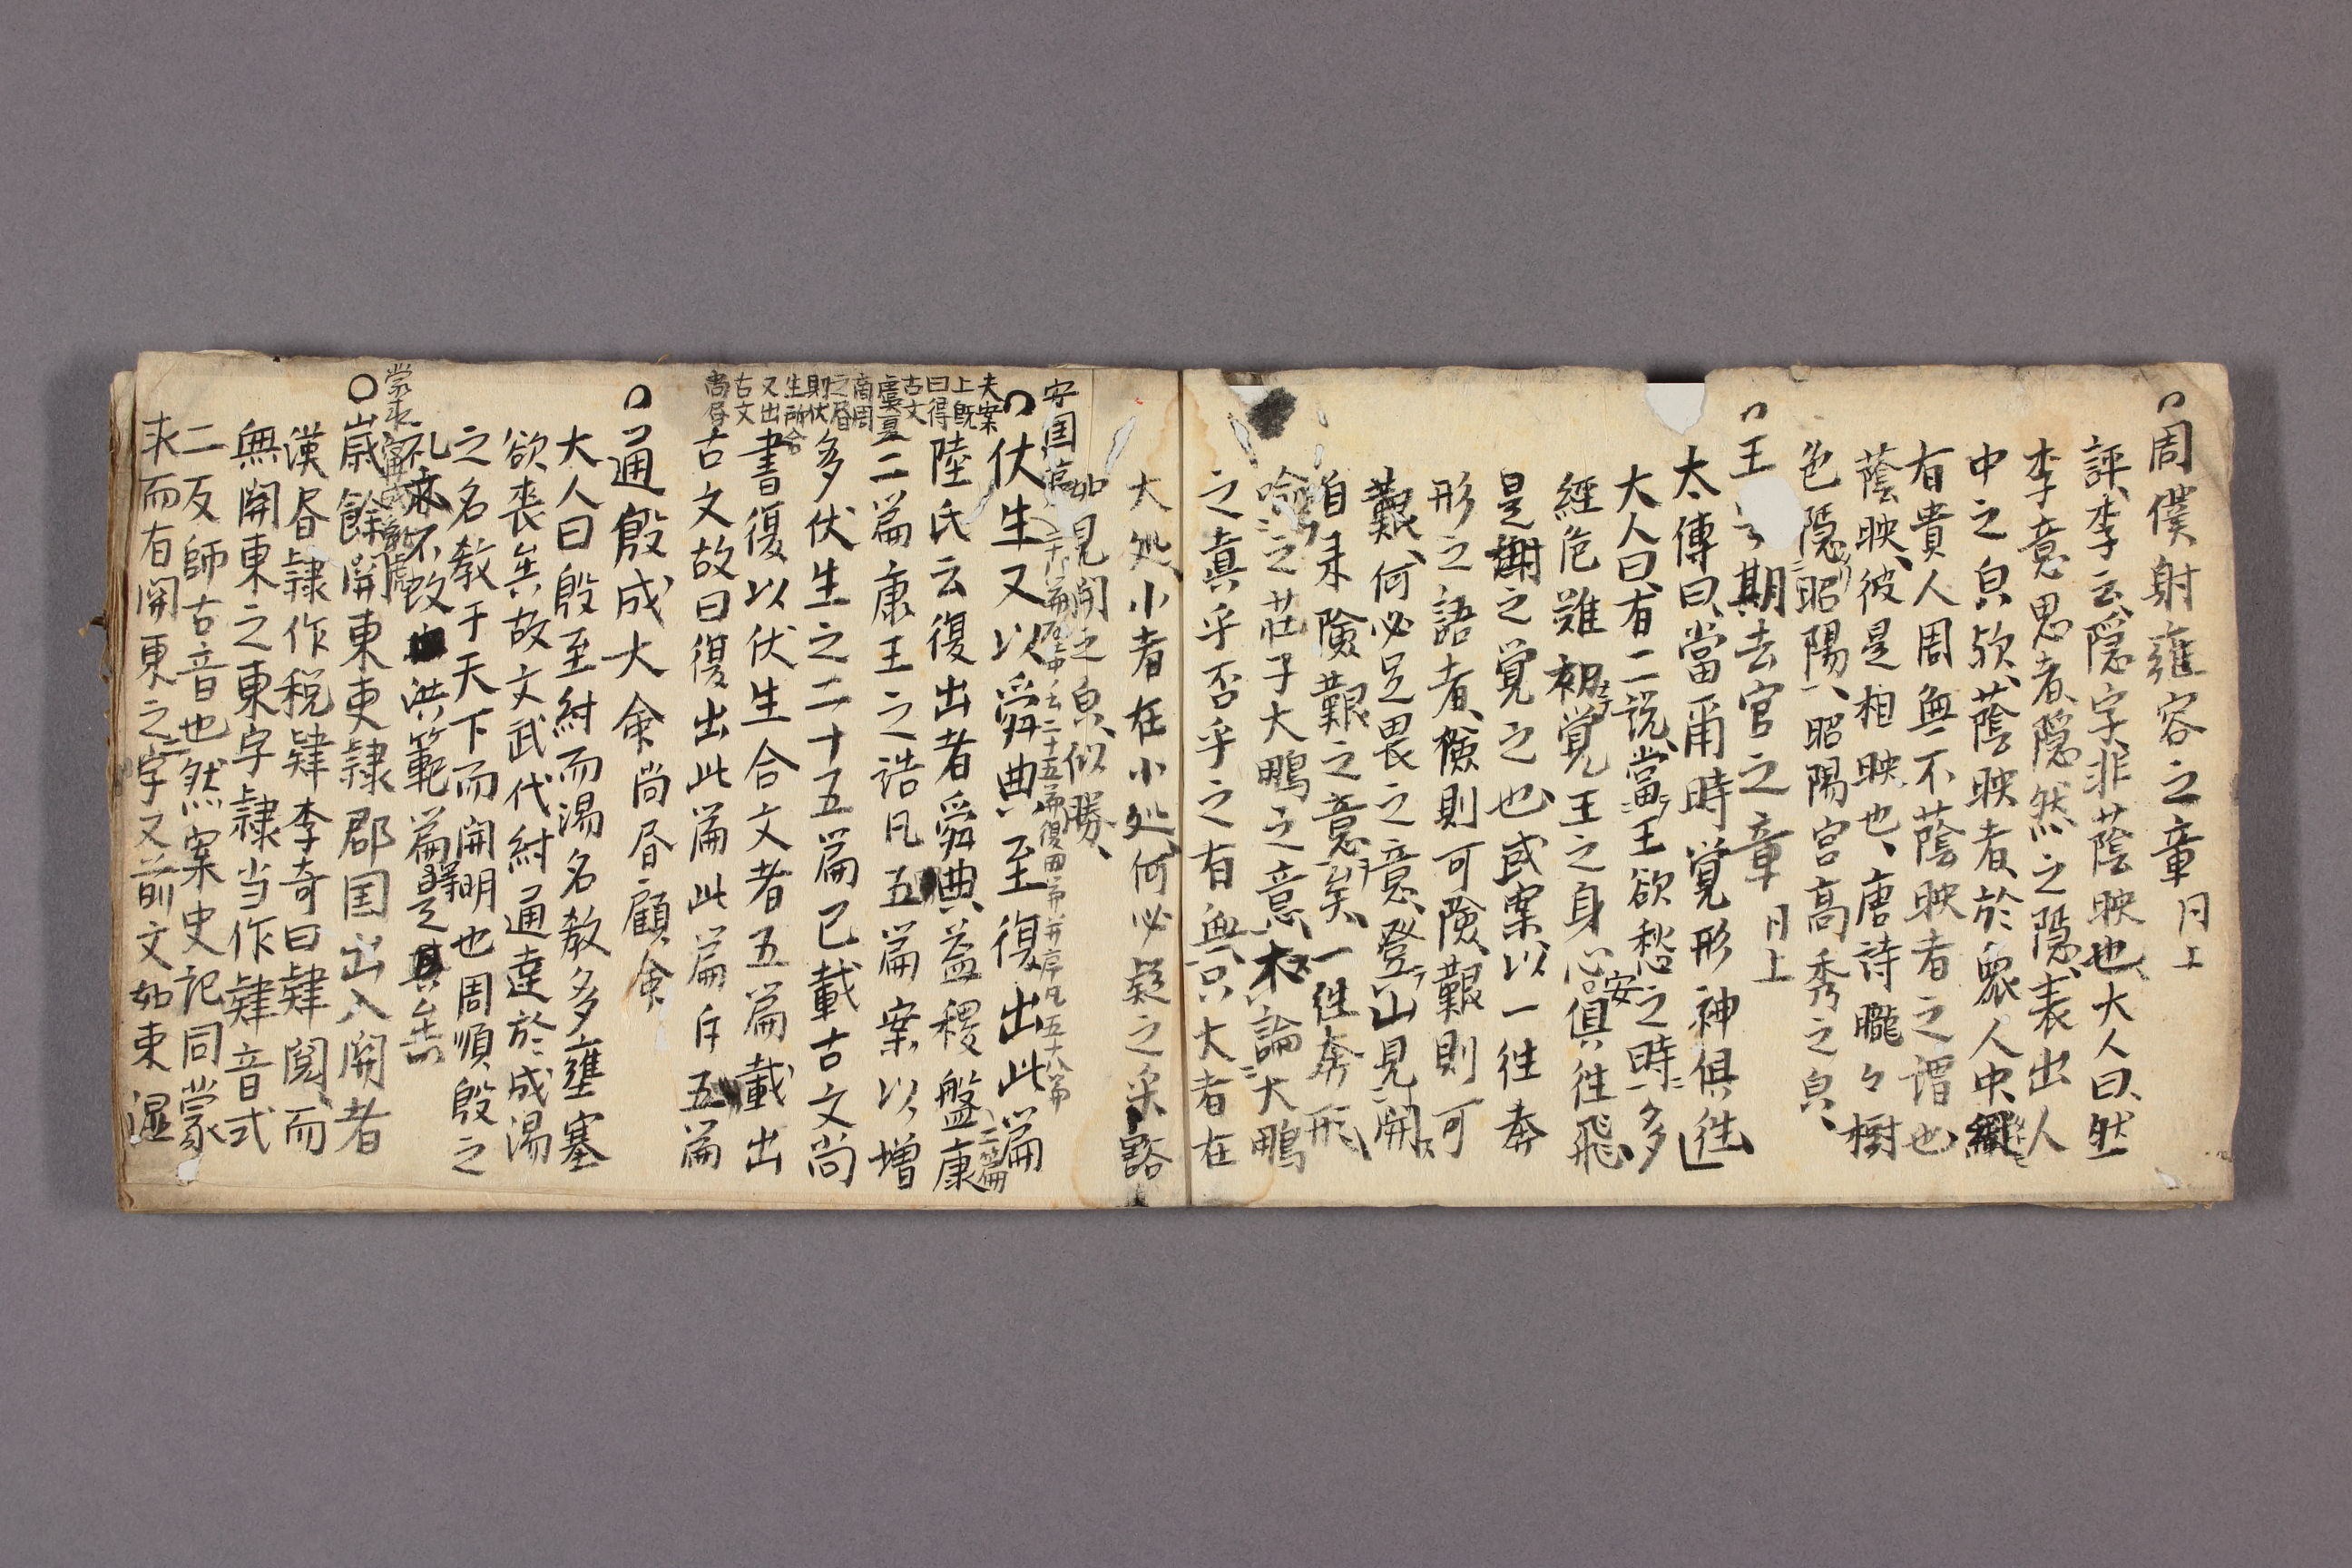 周僕射雍容之章 月上
評李云隠字非蔭映也大人曰然
李意思者隠然之隠表出人
中之皃欤蔭映者於衆人中
有貴人周無不蔭映者之謂也
蔭映彼是相映也唐詩朧々樹
色隠昭陽昭陽宮高秀之皃
王 期去官之章 月上
太傅曰當甬時覚形神俱往
大人曰有二説當王欲愁之時多
経危難初覚王之身心俱往飛
是謝之覚之也或案以一往奔
形之語者儉則可險艱則可
艱何必足畏之意登山見開
自来險艱之意矣一往奔形
喩之莊子大鵬之意本論大鵬
之真乎否乎之有無只大者在
大処小者在小処何必疑之矣豁
如見開之皃似勝
安国 云二十五篇復四篇并序凡五十八篇
伏生又以舜典至復出此篇
夫案上既曰得古文虞夏商周之昏則伏生所合又出古文尚昏
陸氏云復出者舜典益稷盤康二篇
二篇康王之誥凡五篇案以増
多伏生之二十五篇已載古文尚
書復以伏生合文者五篇載出
古文故曰復出此篇此篇斥五篇
通殷成大命尚昏顧命
大人曰殷至紂而湯名教多壅塞
欲喪矣故文武代紂通達於成湯
之名教于天下而開明也周順殷之
礼亦不改 洪範篇 是其矣
歳餘開東吏隷郡国出入関者
漢昏隷作税肄李奇曰肄閲而
無開東之東字隷当作肄音式
二反師古音也然案史記同蒙
求而有開東之二字又前文如東濕